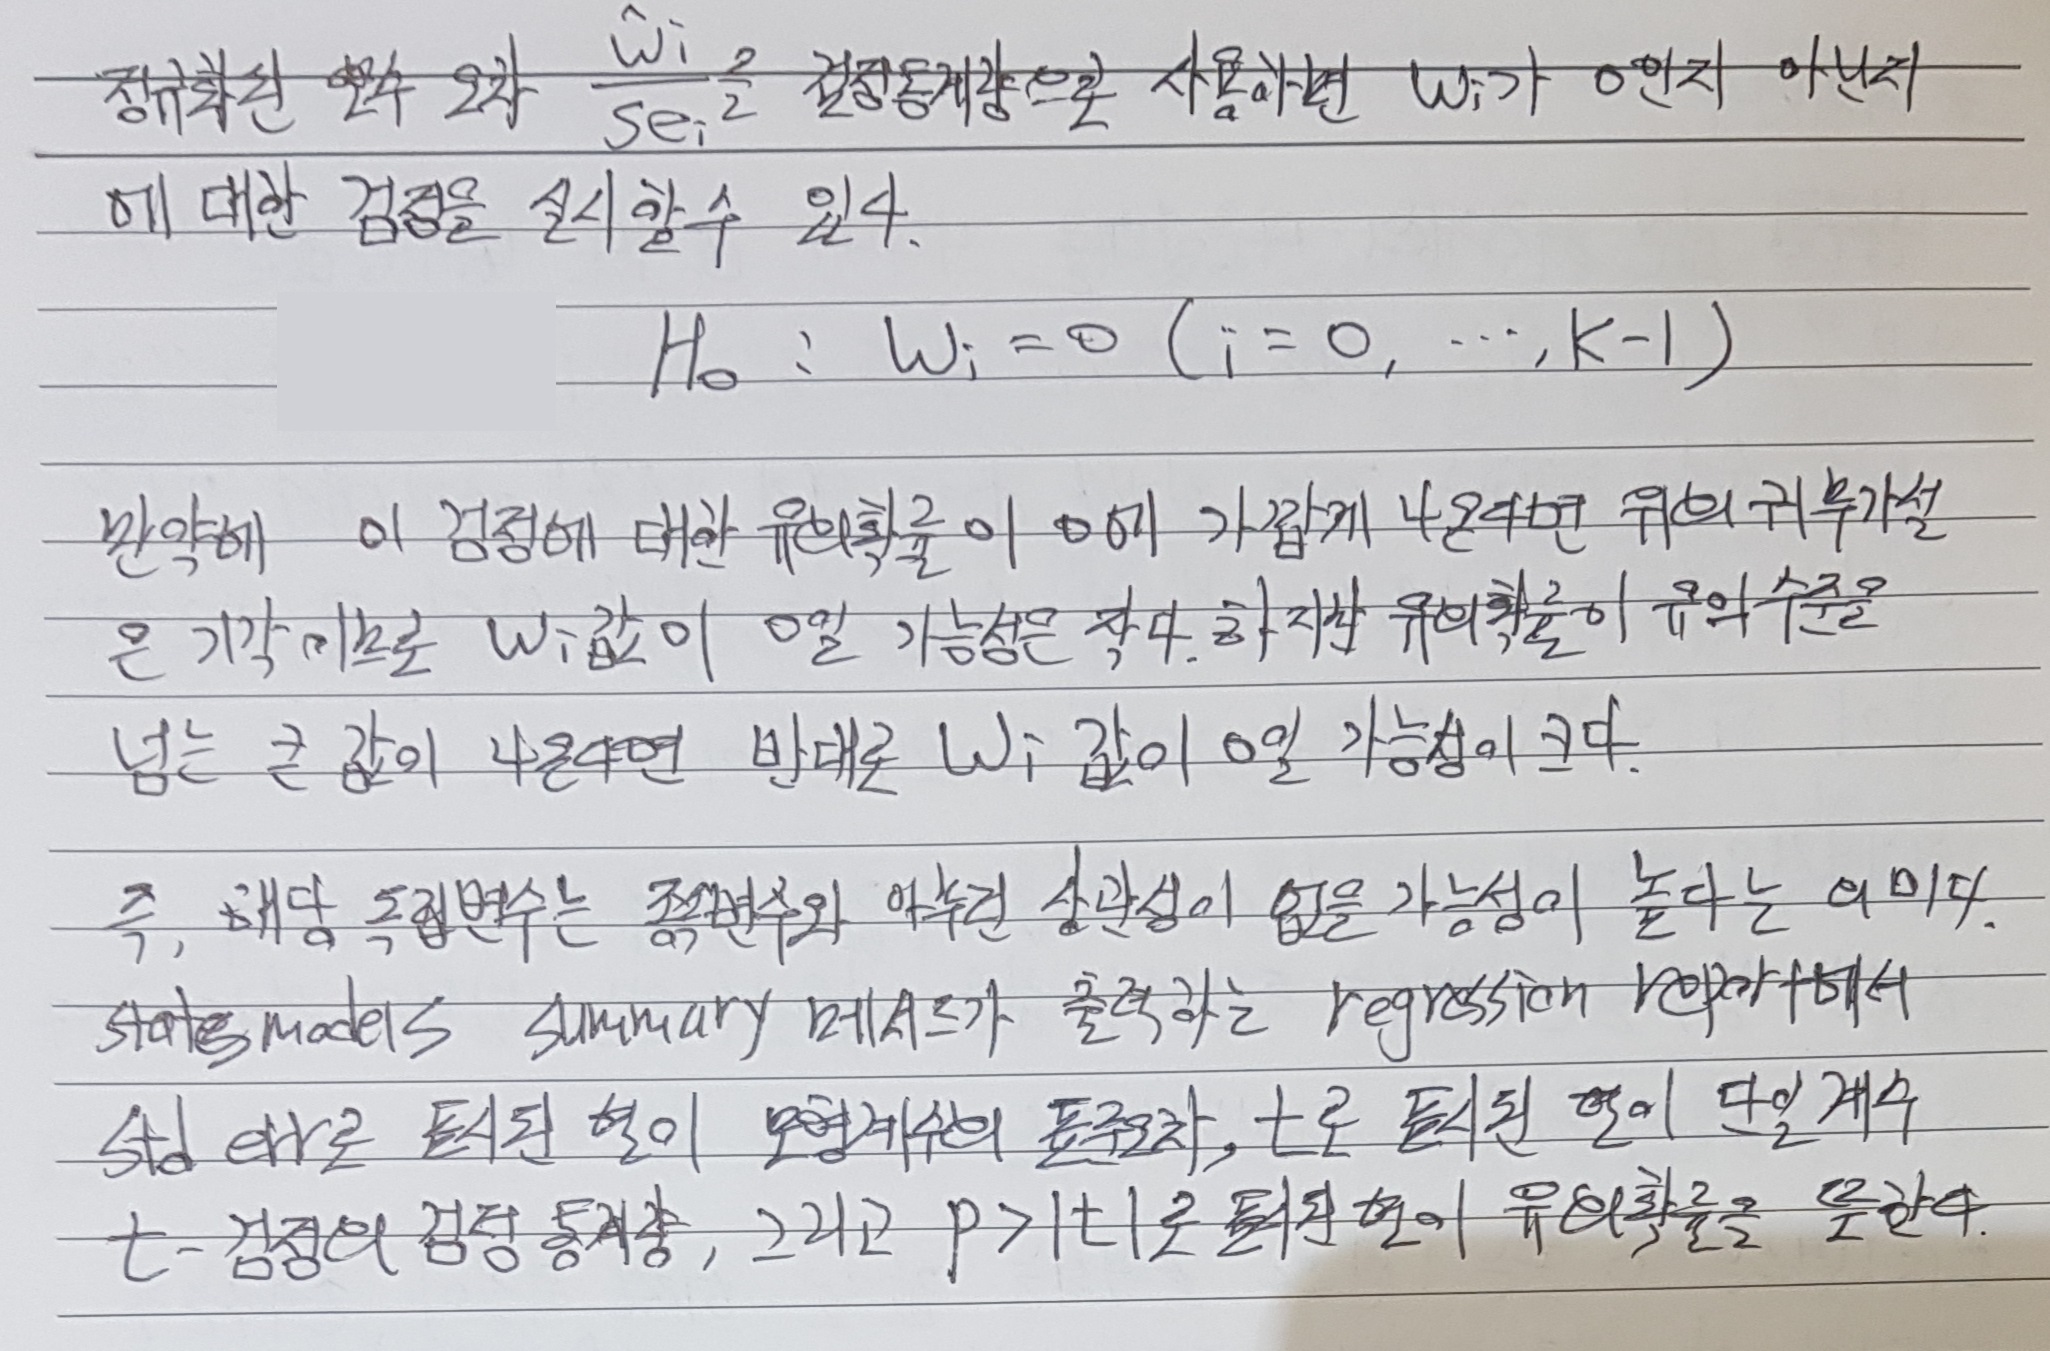 정규화된 모수 오차 ŵi/sei를 검정통계량으로 사용하면 wi가 0인지 아닌지
에 대한 검정을 실시할 수 있다.
H₀ : wi = 0 (i = 0, ⋯, K-1)
만약에 이 검정에 대한 유의확률이 0에 가깝게 나온다면 위의 귀무가설
은 기각이므로 wi값이 0일 가능성은 작다. 하지만 유의확률이 유의수준을
넘는 큰 값이 나온다면 반대로 wi 값이 0일 가능성이 크다.
즉, 해당 독립변수는 종속변수와 아무런 상관성이 없을 가능성이 높다는 의미다.
statsmodels summary 메서드가 출력하는 regression report에서
std err로 표시된 열이 모형계수의 표준오차, t로 표시된 열이 단일계수
t-검정의 검정통계량, 그리고 p>|t|로 표시된 열이 유의확률을 뜻한다.